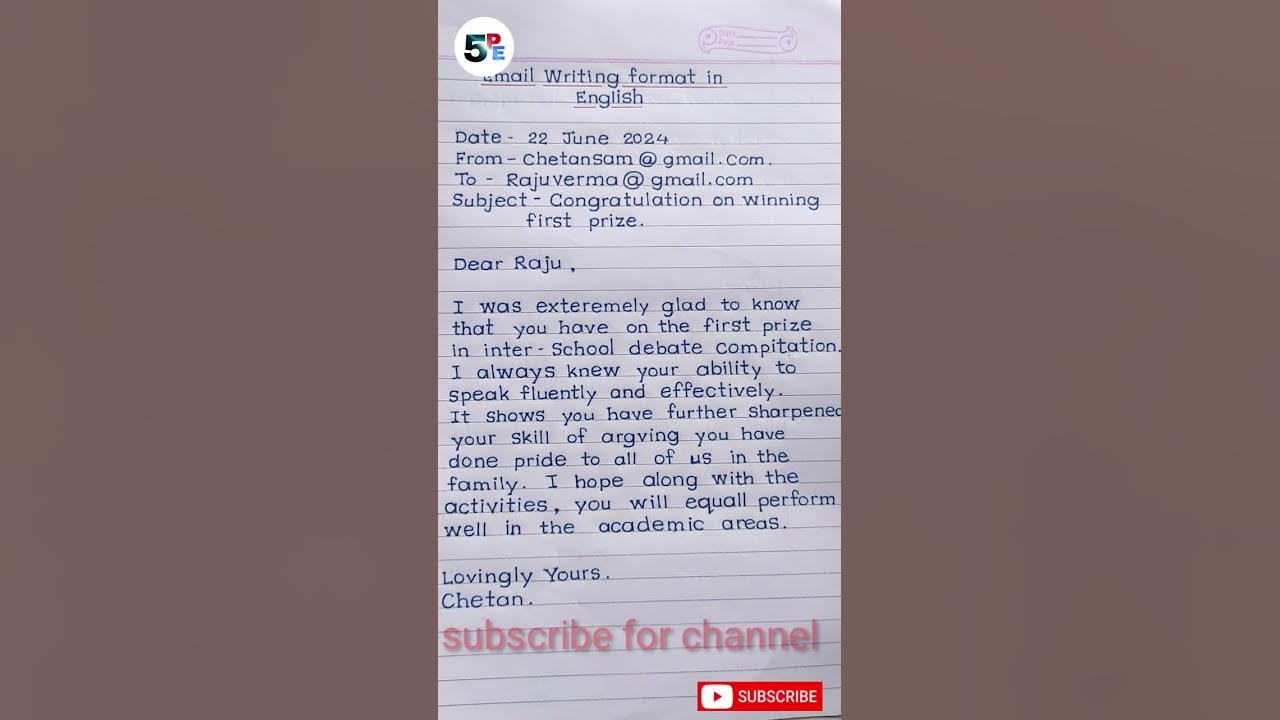 5PE
Date
Page
Email Writing format in
English
Date - 22 June 2024
From - Chetansam@gmail.com.
To - Rajuverma@gmail.com
Subject - Congratulation on winning
first prize.
Dear Raju,
I was exteremely glad to know
that you have on the first prize
in inter-School debate compitation.
I always knew your ability to
speak fluently and effectively.
It shows you have further sharpened
your skill of argving you have
done pride to all of us in the
family. I hope along with the
activities, you will equall perform
well in the academic areas.
Lovingly Yours.
Chetan.
subscribe for channel
SUBSCRIBE